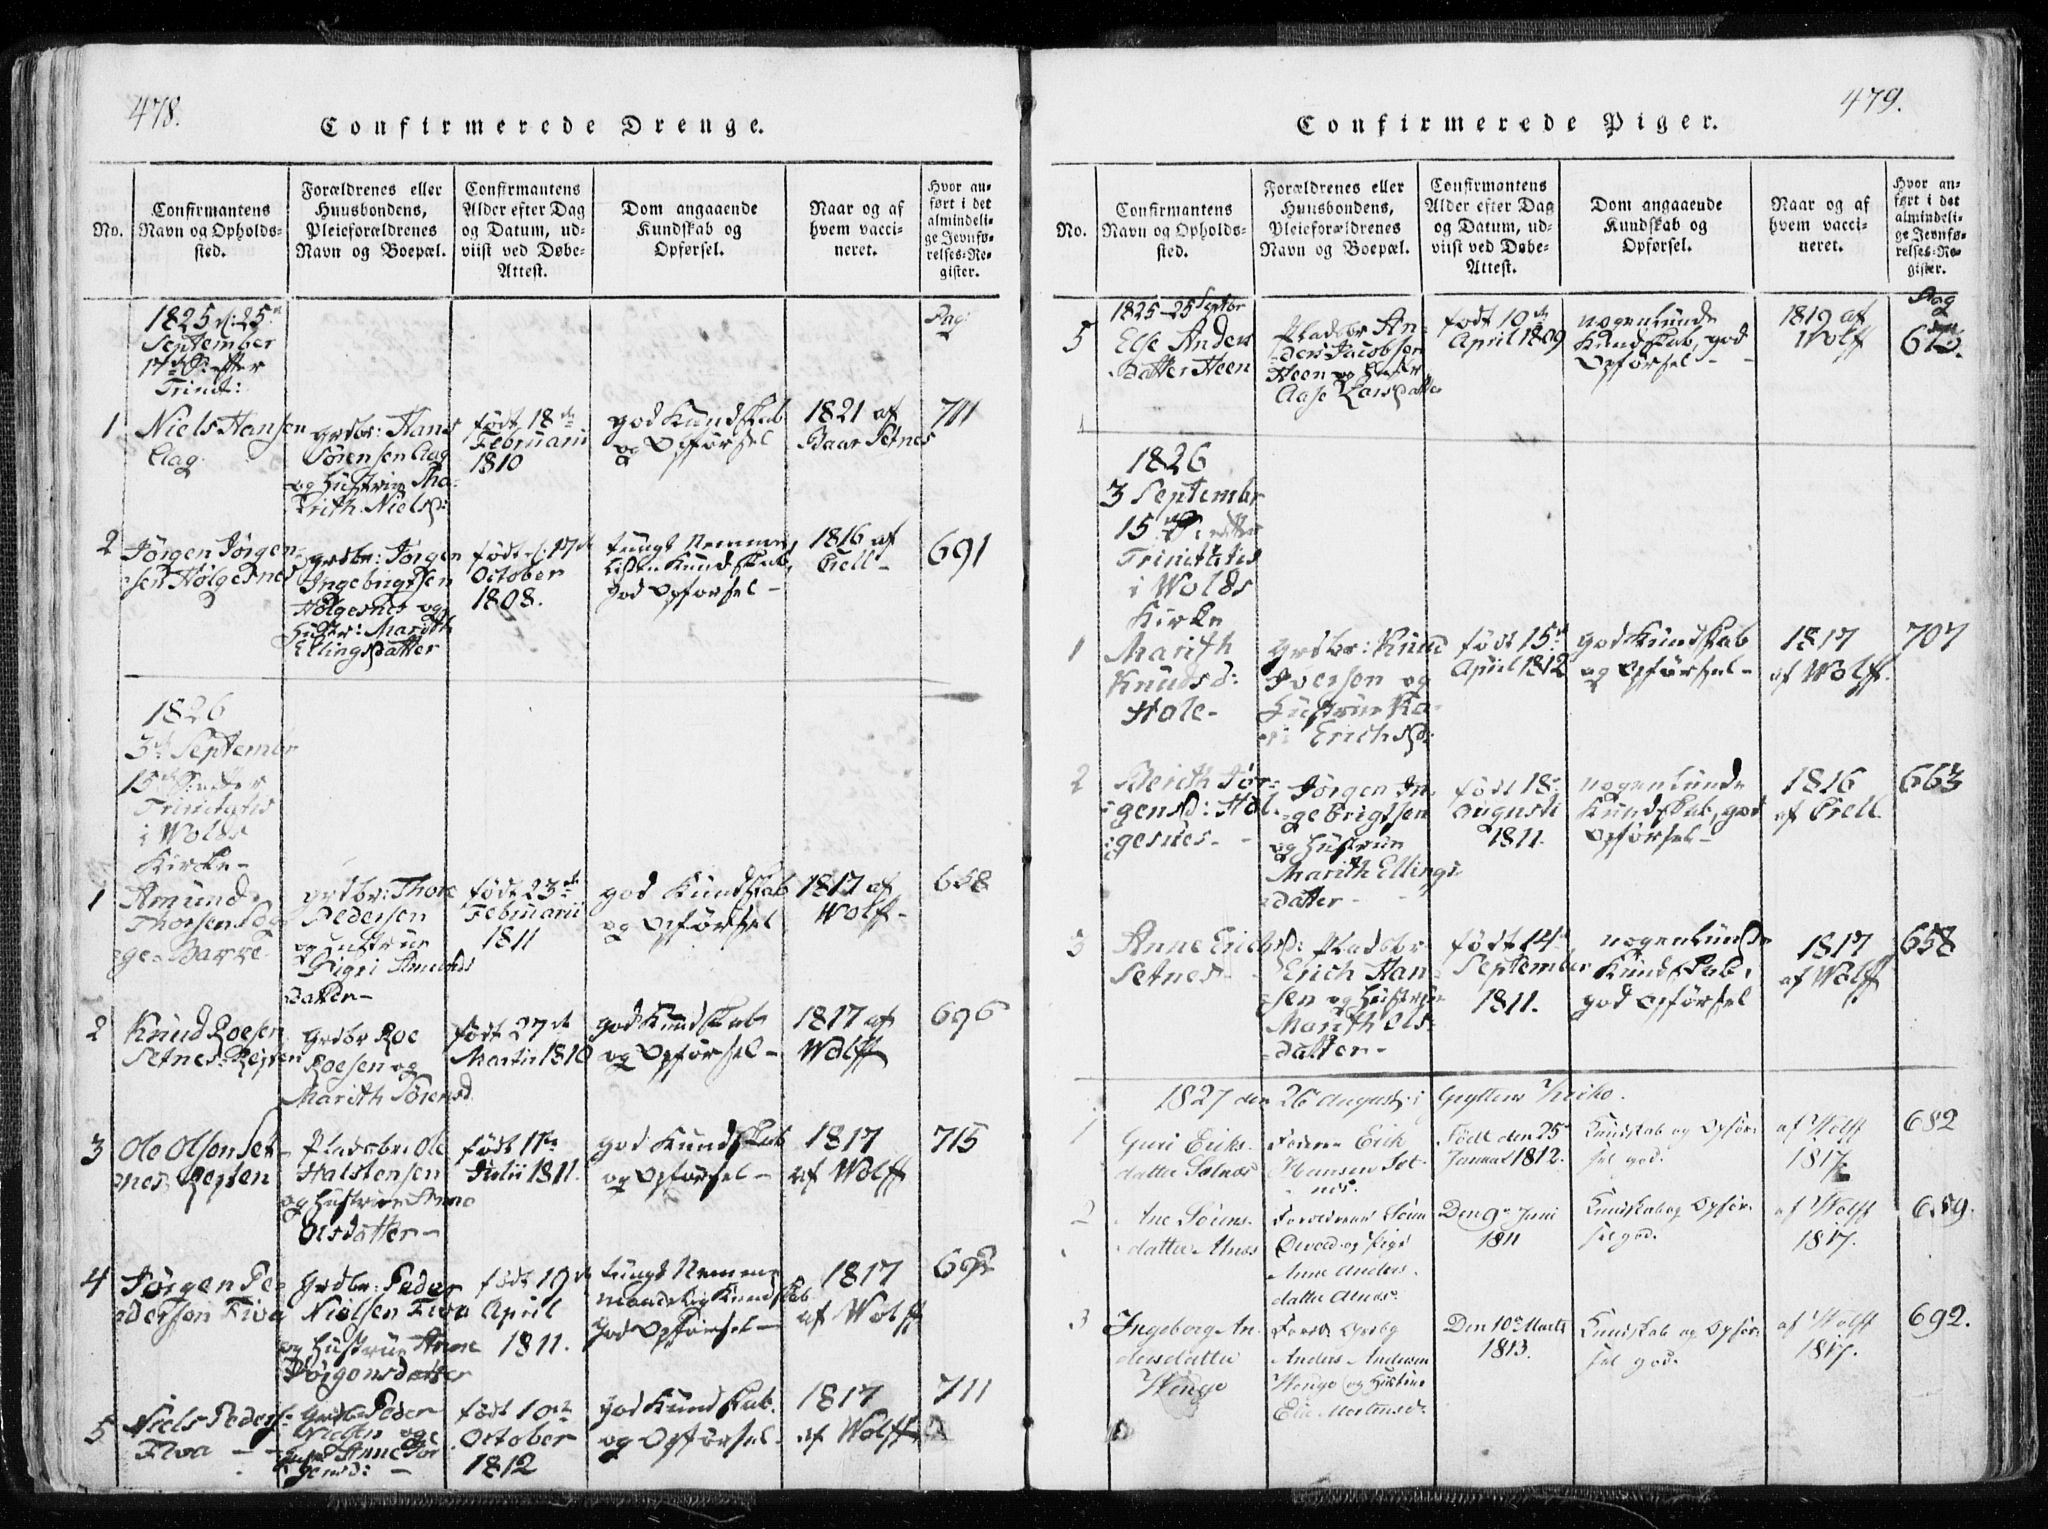 478.
Confirmerede Drenge.
No.
Confirmantens
Navn og Opholds-
sted.
Forældrenes eller
Huusbondens,
Pleieforældrenes
Navn og Boepæl.
Confirmantens
Alder efter Dag
og Datum, ud-
viist ved Døbe-
Attest.
Dom angaaende
Kundskab og
Opførsel.
Naar og af
hvem vacci-
neret.
Hvor an-
ført i det
almindeli-
ge Jevnfø-
relses-Re-
gister.
1825 d: 25
September
17 S: efter
Trinit:
Pag:
1
Niels Hansen
Aag
grdbr: Hans
Sörensen Aag
og Hustrue Ma-
rith Nielsd:
født 18de
Februarii
1810
god Kundskab
og Opförsel
1821 af
Baar Setnes
711
2
Jörgen Jörgen-
sen Hølgesnes
grdbr: Jörgen
Ingebrigtsen
Hølgesnes og
Hustr: Marith
Ellingsdatter
født d: 17de
October
1808.
tungt Nemme,
liden Kundskab,
god Opförsel -
1816 af
Crell -
691
1826
3de September
15de S: efter
Trinitatis
i Wolds
Kirke -
1
Amund
Thorsen Sog-
ge - Barre -
grdbr: Thore
Pedersen
og Hustrue
Sigri Amunds
datter -
født 23de
Februarii
1811
god Kundskab
og Opförsel
1817 af
Wolff -
658
2
Knud Roesen
Setnes-Repten
Grdbr Roe
Roesen og
Marith Sörensd
født 27de
Martii 1810
god Kundskab
og Opförsel -
1817 af
Wolff
696
3
Ole Olsen Set-
nes Repten
Pladsbr: Ole
Halstensen
og Hustrue Anne
Olsdatter -
født 17de
Julii 1811.
god Kundskab
og Opförsel -
1817
af Wolff
715
4
Jörgen Pe-
dersen Fiva
Grdbr: Peder
Nielsen Fiva
og Hustrue Anne
Jörgensdatter
født 19de
April
1811.
tungt Nemme
maadelig Kundskab
god Opförsel -
1817
af Wolff
692
5
Niels Peders:
Fiva - -
Grdbr Peder
Nielsen og
Hustr Anne Jör
gensd: -
født 10de
October
1812
god Kundskab
og Opförsel -
1817
af Wolff
711
479.
Confirmerede Piger.
No.
Confirmantens
Navn og Opholds-
sted.
Forældrenes eller
Huusbondens,
Pleieforældrenes
Navn og Boepæl.
Confirmantens
Alder efter Dag
og Datum, ud-
viist ved Døbe-
Attest.
Dom angaaende
Kundskab og
Opførsel.
Naar og af
hvem vacci-
neret.
Hvor an-
ført i det
almindeli-
ge Jevnfø-
relses-Re-
gister.
1825 - 25 Septbr
Pag
5
Else Anders
datter Heen
Pladsbr An-
ders Jacobsen
Heen og Hustr
Aase Larsdatter
født 10de
April 1809
nogenlunde
Kundskab, god
Opförsel -
1819 af
Wolff
613.
1826
3 Septembr
15 S: efter
Trinitatis
i Wolds
Kirke
1
Marith
Knudsd:
Hole -
grdbr: Knud
Iversen og
Hustrue Ka-
ri Erichsd:
født 15de
April 1812
god Kundskab
og Opförsel -
1817
af Wolff.
707
2
Berith Jör-
gensd: Høl-
gesnes - -
Jörgen In-
gebrigtsen
og Hustrue
Marith Ellings
datter - -
født 18
Augusti
1811.
nogenlunde
Kundskab, god
Opförsel -
1816
af Crell
663
3
Anne Erichsd:
Setnes -
Pladsbr
Erich Han-
sen og Hustrue
Marith Ols-
datter -
født 14de
September
1811.
nogenlunde
Kundskab,
god Opförsel
1817
af Wolff
658
1827 den 26 August i Gryttens Kirke.
1
Guri Eriks-
datter Sætnæs
Faderen Erik
Hansen Sæt-
næs.
Født den 25
Januar 1812.
Kundskab og Opför-
sel god.
af Wolff
1817
682
2
Ane Sörens-
datter Alnæs
Forældrene Sören
og Pige
Anne Anders-
datter Alnæs.
Den 9de Juni
1811
Kundskab og Opför-
sel god.
af Wolff
1817.
689.
3
Ingeborg An-
dersdatter
Wenge
Anders Andersen
Wenge og Hustrue
Eli Mortensd.
Den 10de Marts
1813.
Kundskab og Opför-
sel god.
af Wolff
1817.
692.